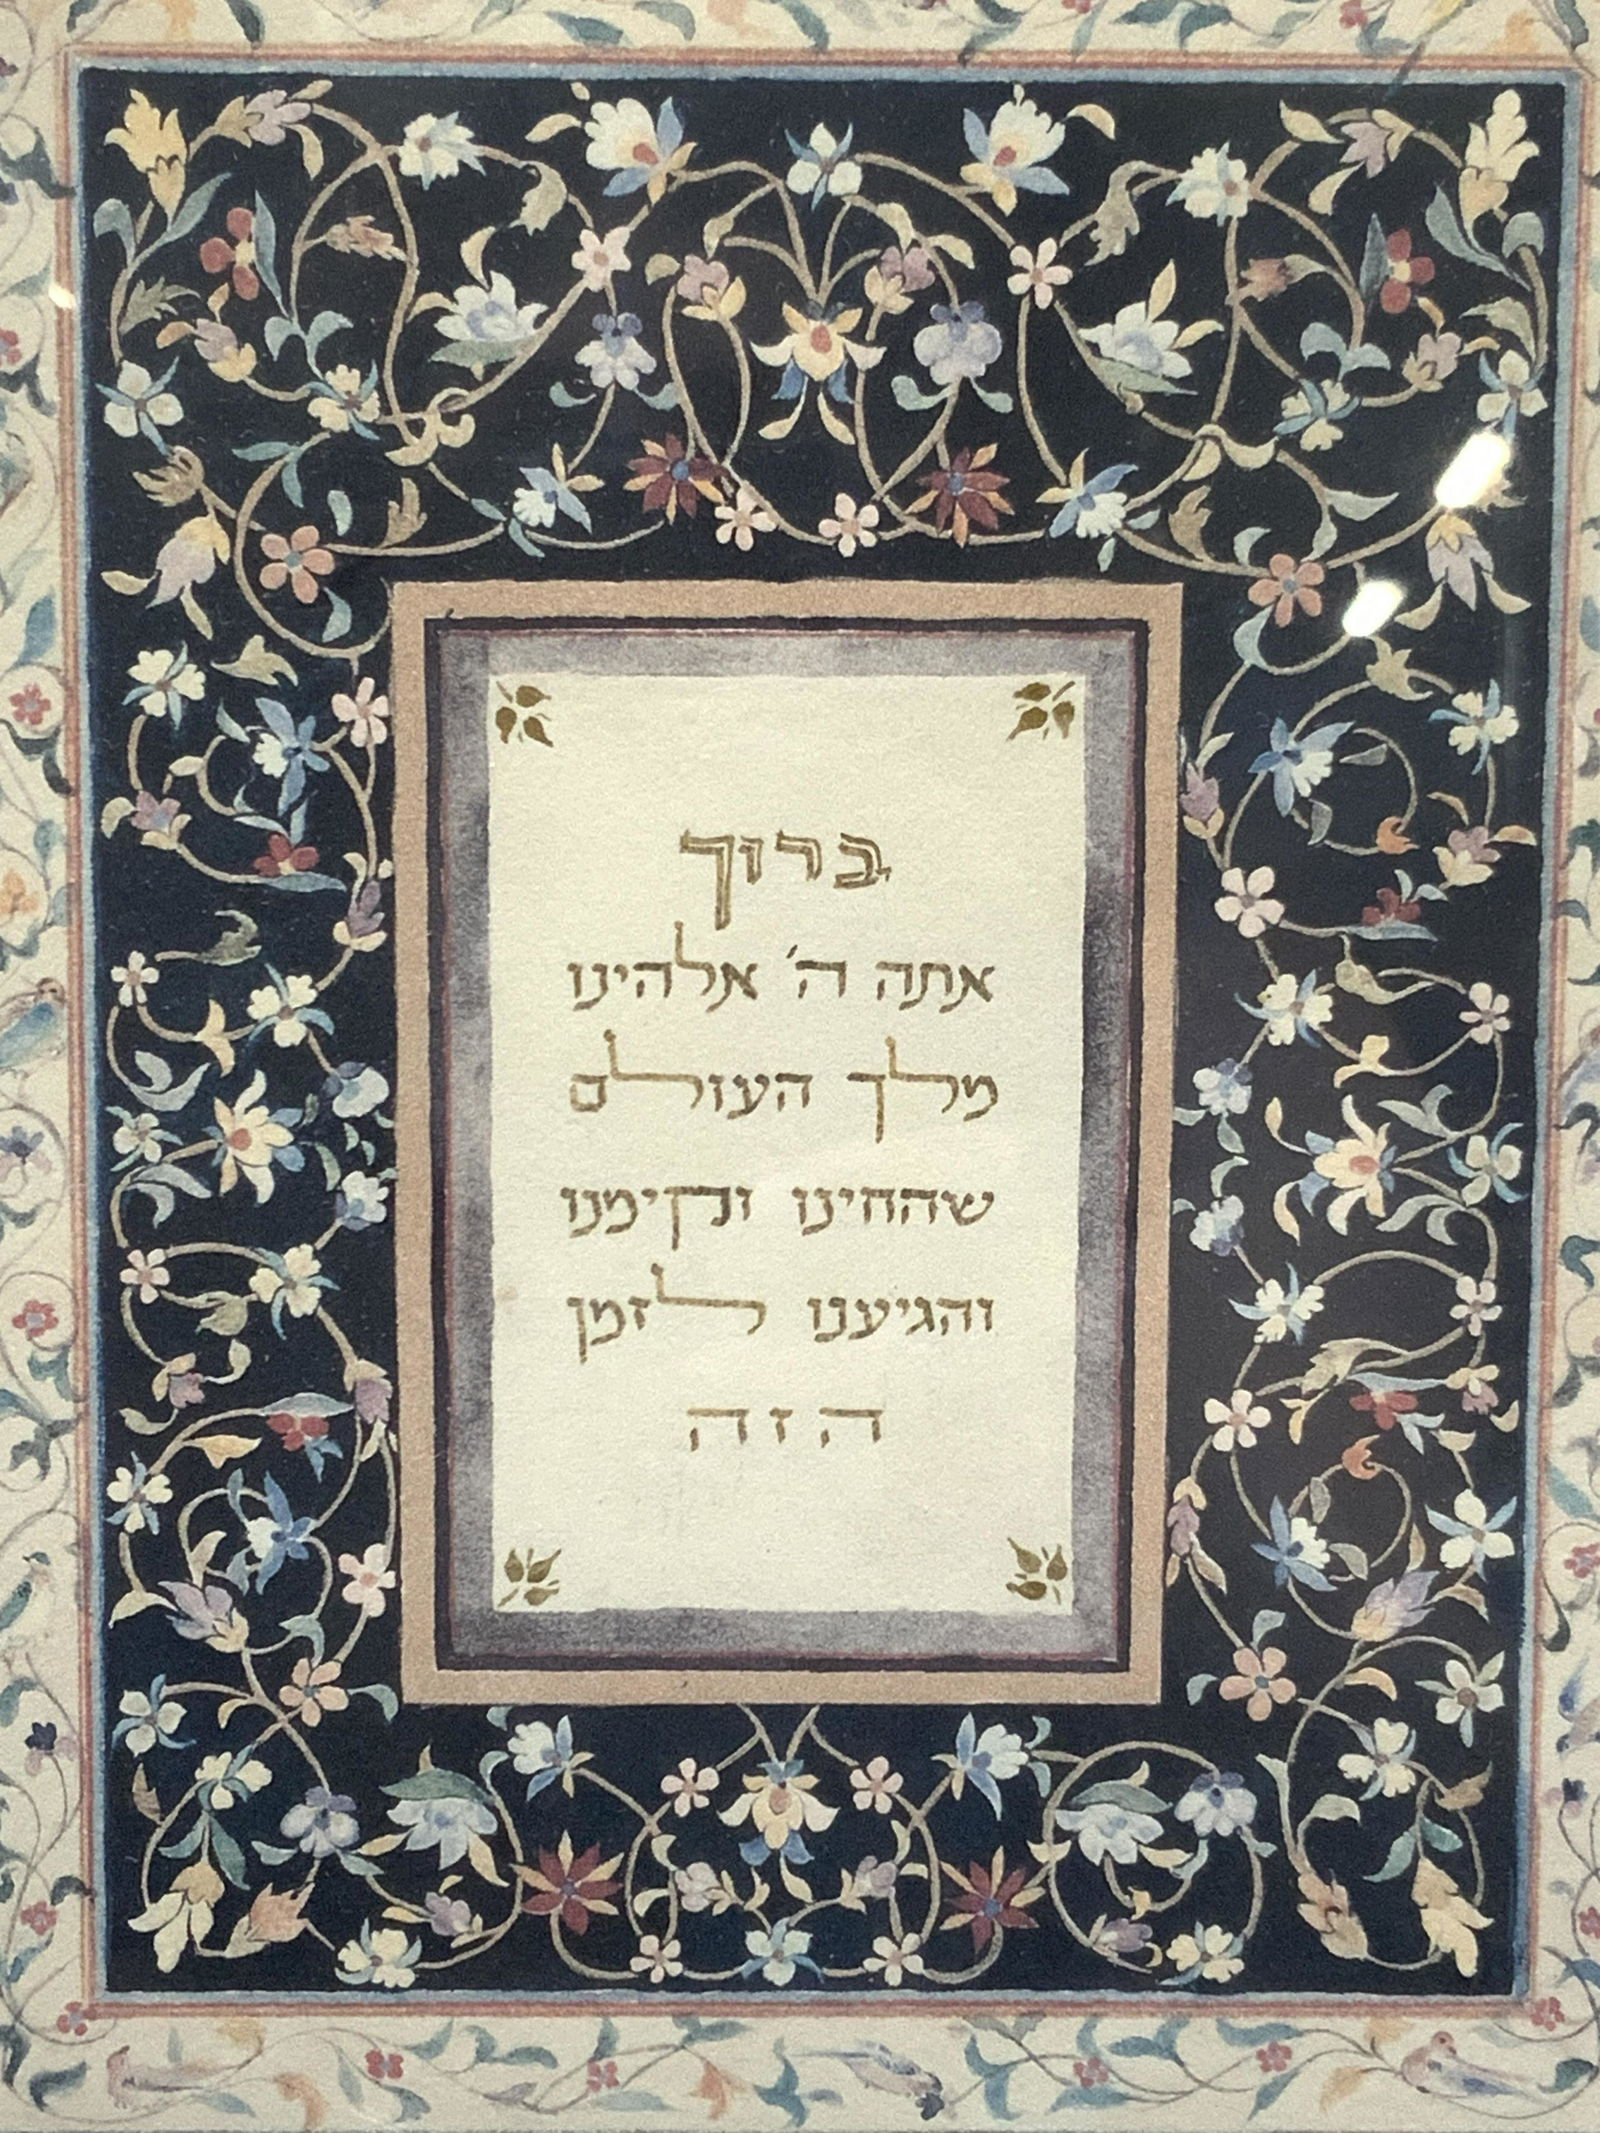 ברוך
אתה ה' אלהינו
מלך העולם
שהחינו וקימנו
והגיענו לזמן
הזה